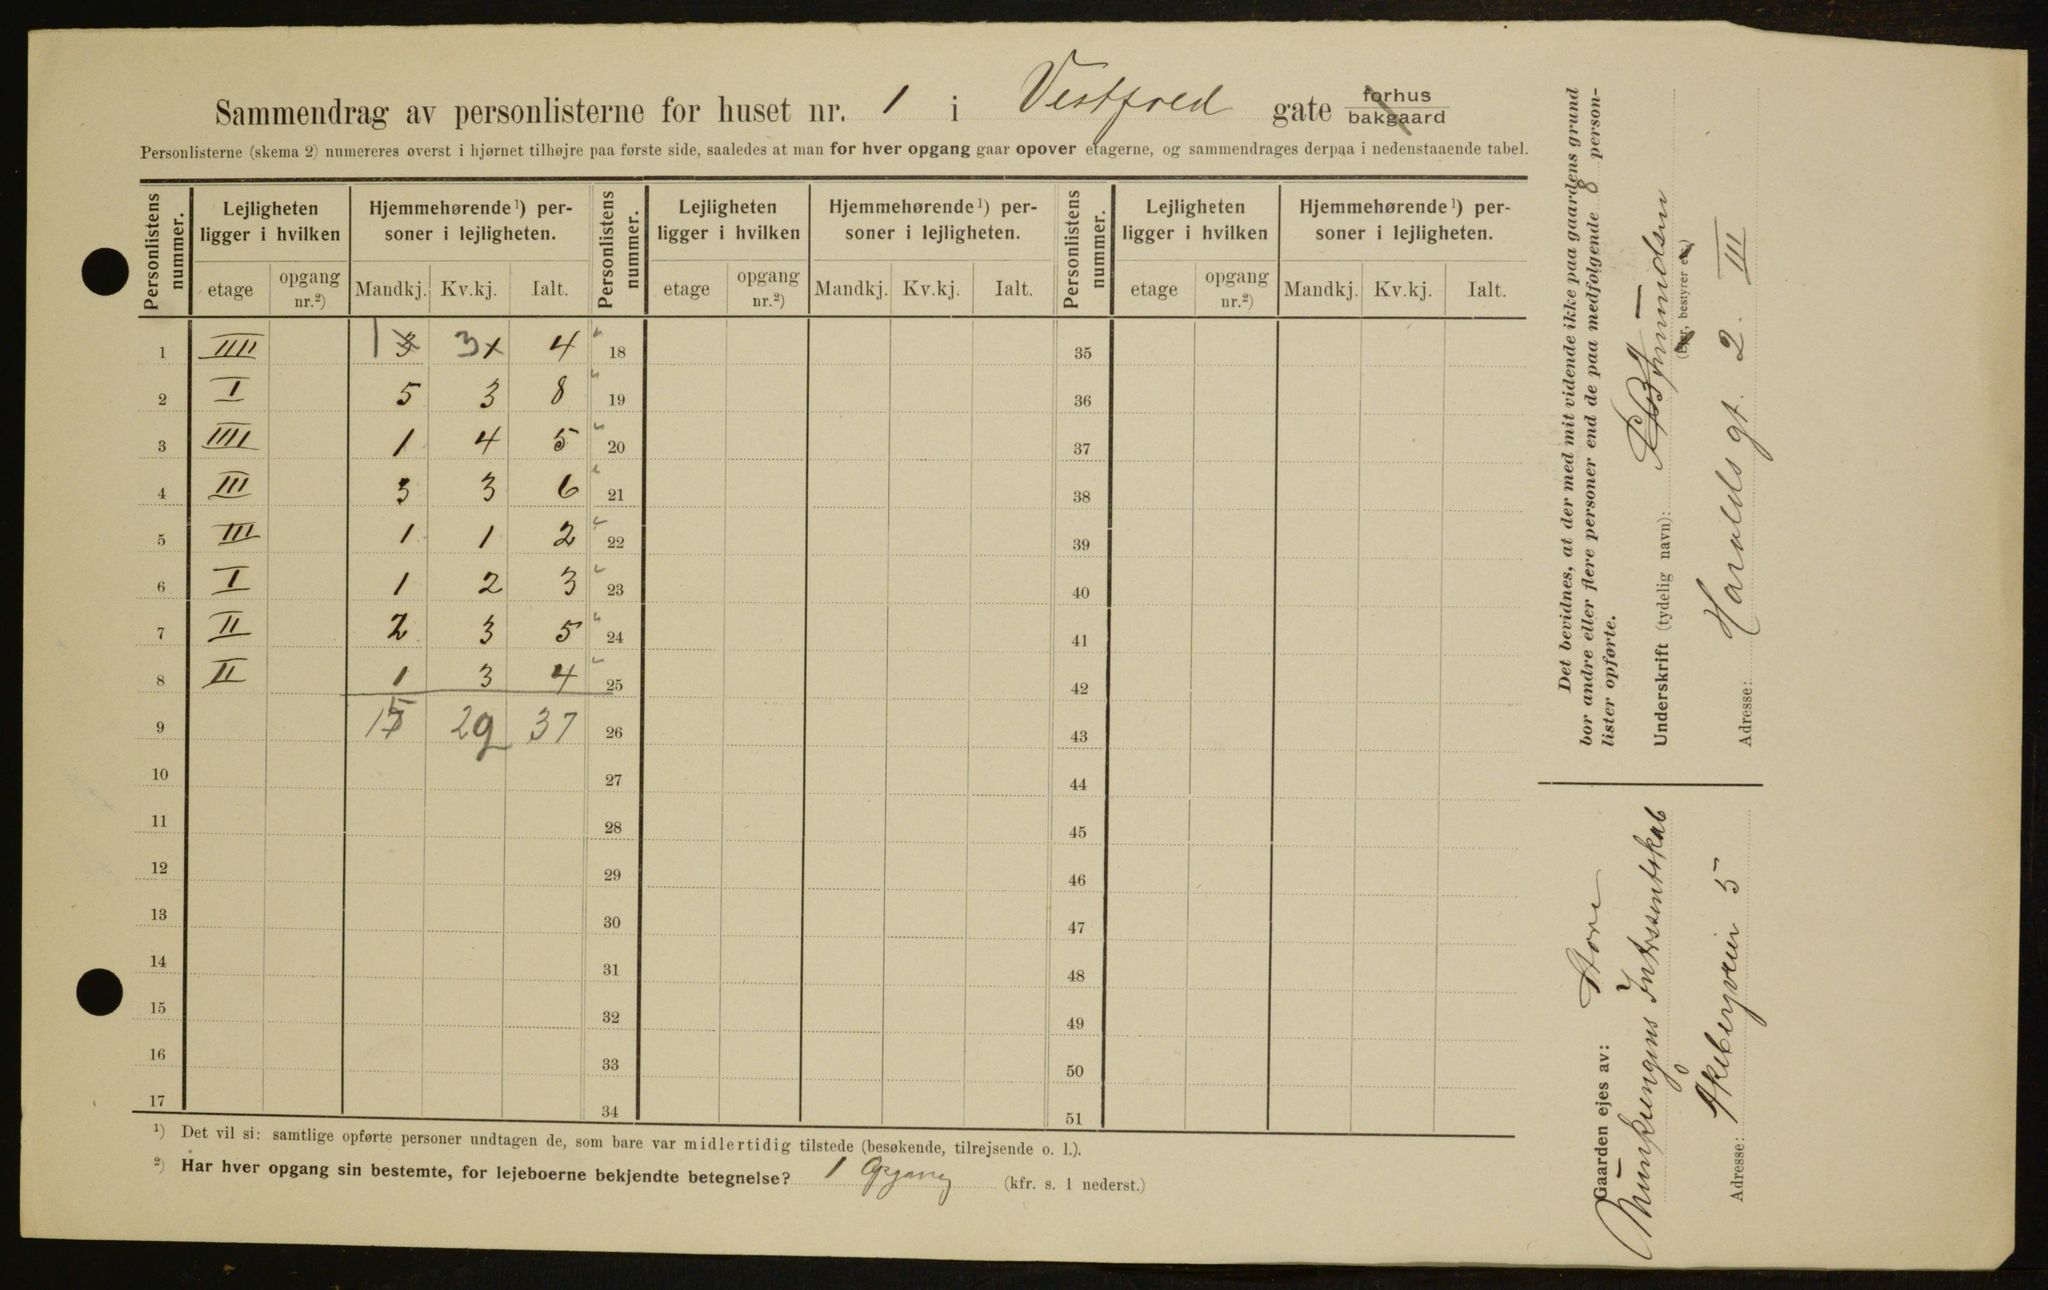 Sammendrag av personlisterne for huset nr. 1 i Vestfold gate forhus bakgaard
Personlisterne (skema 2) numereres øverst i hjørnet tilhøjre paa første side, saaledes at man for hver opgang gaar opover etagerne, og sammendrages derpaa i nedenstaaende tabel.
Personlistens nummer. Lejligheten ligger i hvilken Hjemmehørende ¹) personer i lejligheten. Personlistens nummer. Lejligheten ligger i hvilken Hjemmehørende ¹) personer i lejligheten. Personlistens nummer. Lejligheten ligger i hvilken Hjemmehørende ¹) personer i lejligheten.
etage opgang nr.²) Mandkj. Kv.kj. Ialt. etage opgang nr.²) Mandkj. Kv.kj. Ialt. etage opgang nr.²) Mandkj. Kv.kj. Ialt.
1 IIII 1 3 4 18 35
2 I 5 3 8 19 36
3 IIII 1 4 5 20 37
4 III 3 3 6 21 38
5 III 1 1 2 22 39
6 I 1 2 3 23 40
7 II 2 3 5 24 41
8 II 1 3 4 25 42
9 15 22 37 26 43
10 27 44
11 28 45
12 29 46
13 30 47
14 31 48
15 32 49
16 33 50
17 34 51
¹) Det vil si: samtlige opførte personer undtagen de, som bare var midlertidig tilstede (besøkende, tilrejsende o. l.).
²) Har hver opgang sin bestemte, for lejeboerne bekjendte betegnelse? 1 Opgang (kfr. s. 1 nederst.)
Det bevidnes, at der med mit vidende ikke paa gaardens grund
bor andre eller flere personer end de paa medfølgende 8 person-
lister opførte.
Underskrift (tydelig navn):
(Ejer, bestyrer etc.)
Adresse: Haralds gt. 2. III
Gaarden ejes av: Store
Munkengens Intressentskab
Adresse: Åkebergveien 5